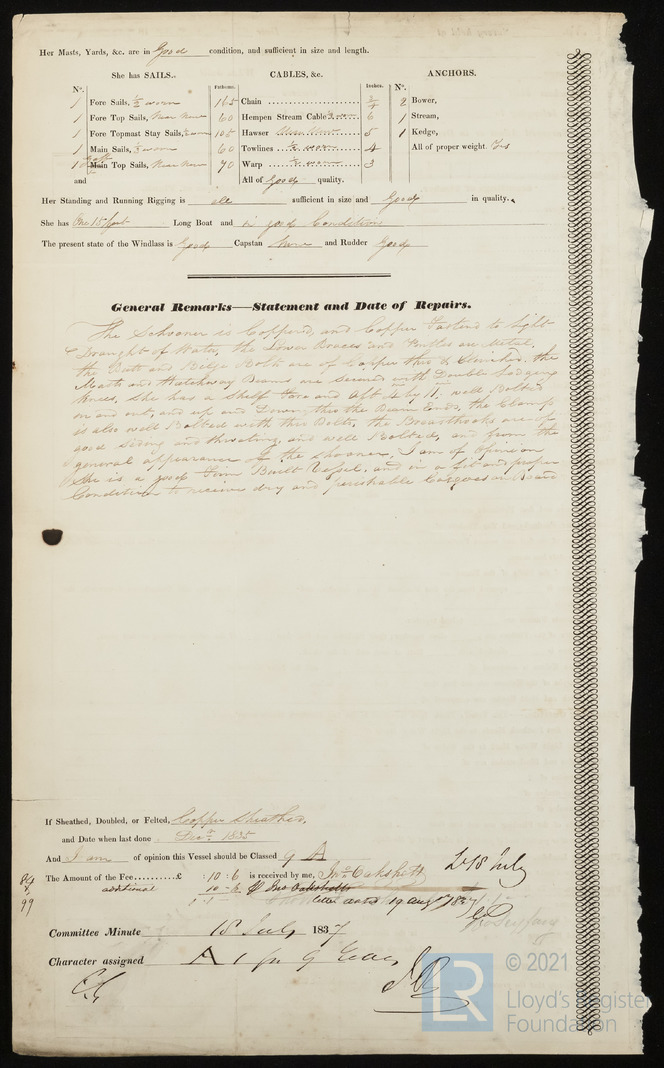 Her Masts, Yards, &c. are in Good condition, and sufficient in size and length.
She has SAILS. CABLES, &c. ANCHORS.
No. Fathoms. Inches. No.
1 Fore Sails, ½ worn 165 Chain 3/4 2 Bower,
1 Fore Top Sails, Near New 60 Hempen Stream Cable 6 1 Stream,
1 Fore Topmast Stay Sails, 100 Hawser 5 1 Kedge,
1 Main Sails, ½ worn 60 Towlines ½ worn 4 All of proper weight Yes
Main Top Sails, Near New 70 Warp ½ worn 3
and All of Good quality.
Her Standing and Running Rigging is all sufficient in size and Good in quality.
She has One 15 foot Long Boat and in good Condition
The present state of the Windlass is Good Capstan None and Rudder Good
General Remarks—Statement and Date of Repairs.
The Schooner is Coppered, and Copper Fastend to Light
Draught of Water, the Lower Braces and Pintles are Metal,
the Butt and Bilge Bolts are of Copper thro & Clinched. the
Masts and Hatchway Beams are Secured with Double Lodging
Knees, She has a Shelf Fore and Aft by 11, well Bolted
in and out, and up and Down, thro the Beam Ends, the Clamp
is also well Bolted with thro Bolts, the Breasthooks are of
good Siding and throating, and well Bolted, and from the
general appearance of the Schooner, I am of Opinion
She is a good Firm Built Vessel, and in a fit and proper
Condition to receive dry and perishable Cargoes
If Sheathed, Doubled, or Felted, Copper Sheathed,
and Date when last done Decr. 1835
And I am of opinion this Vessel should be Classed 9 A
The Amount of the Fee £ : 10 : 6 is received by me, Jno. Oakshott Lr 18 July
additional 10 : 6 Jno Oakshott
1 : 1 letter dated 19 Augt 1837
99
Committee Minute 18 July 1837
Character assigned A 1 for 9 Years
© 2021
LR
Lloyd's Register
Foundation